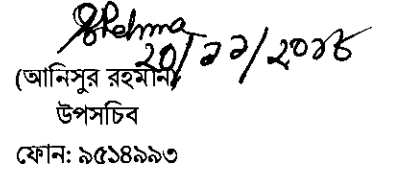 ২০/১১/২০১৮
(আনিসুর রহমান)
উপসচিব
ফোন: ৯৫১৪৯৯৩